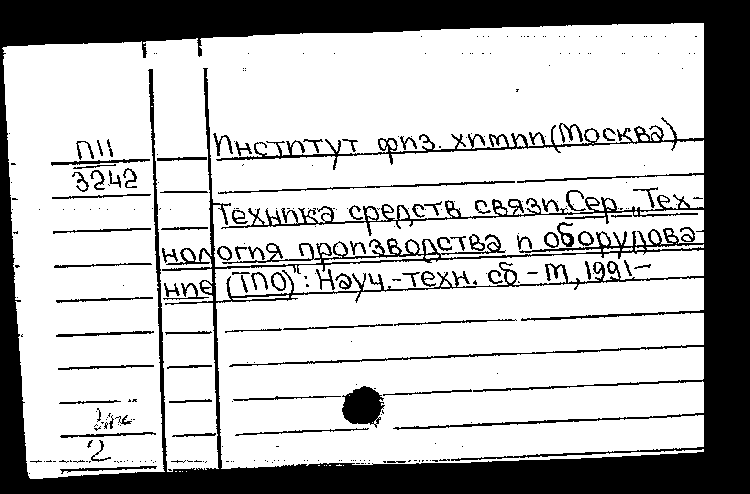 П11
3242
Институт физ. химии (Москва)
Техника средств связи. Сер. „Тех-
нология производства и оборудова-
ние (ТПО)": Науч.-техн. сб - М, 1991-
2